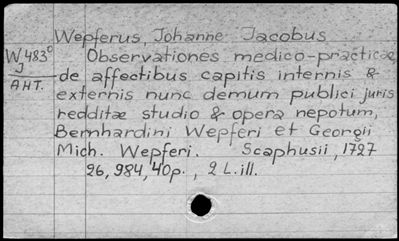 Wepferus, Johanne Jacobus
W 483⁰ Observationes medico-practicae,
J
AHT. de affectibus capitis internis &
externis nunc demum publici juris
redditæ studio & opera nepotum,
Bernhardini Wepferi et Georgii
Mich. Wepferi. Scaphusii, 1727
26, 984, 40p., 2 L. ill.